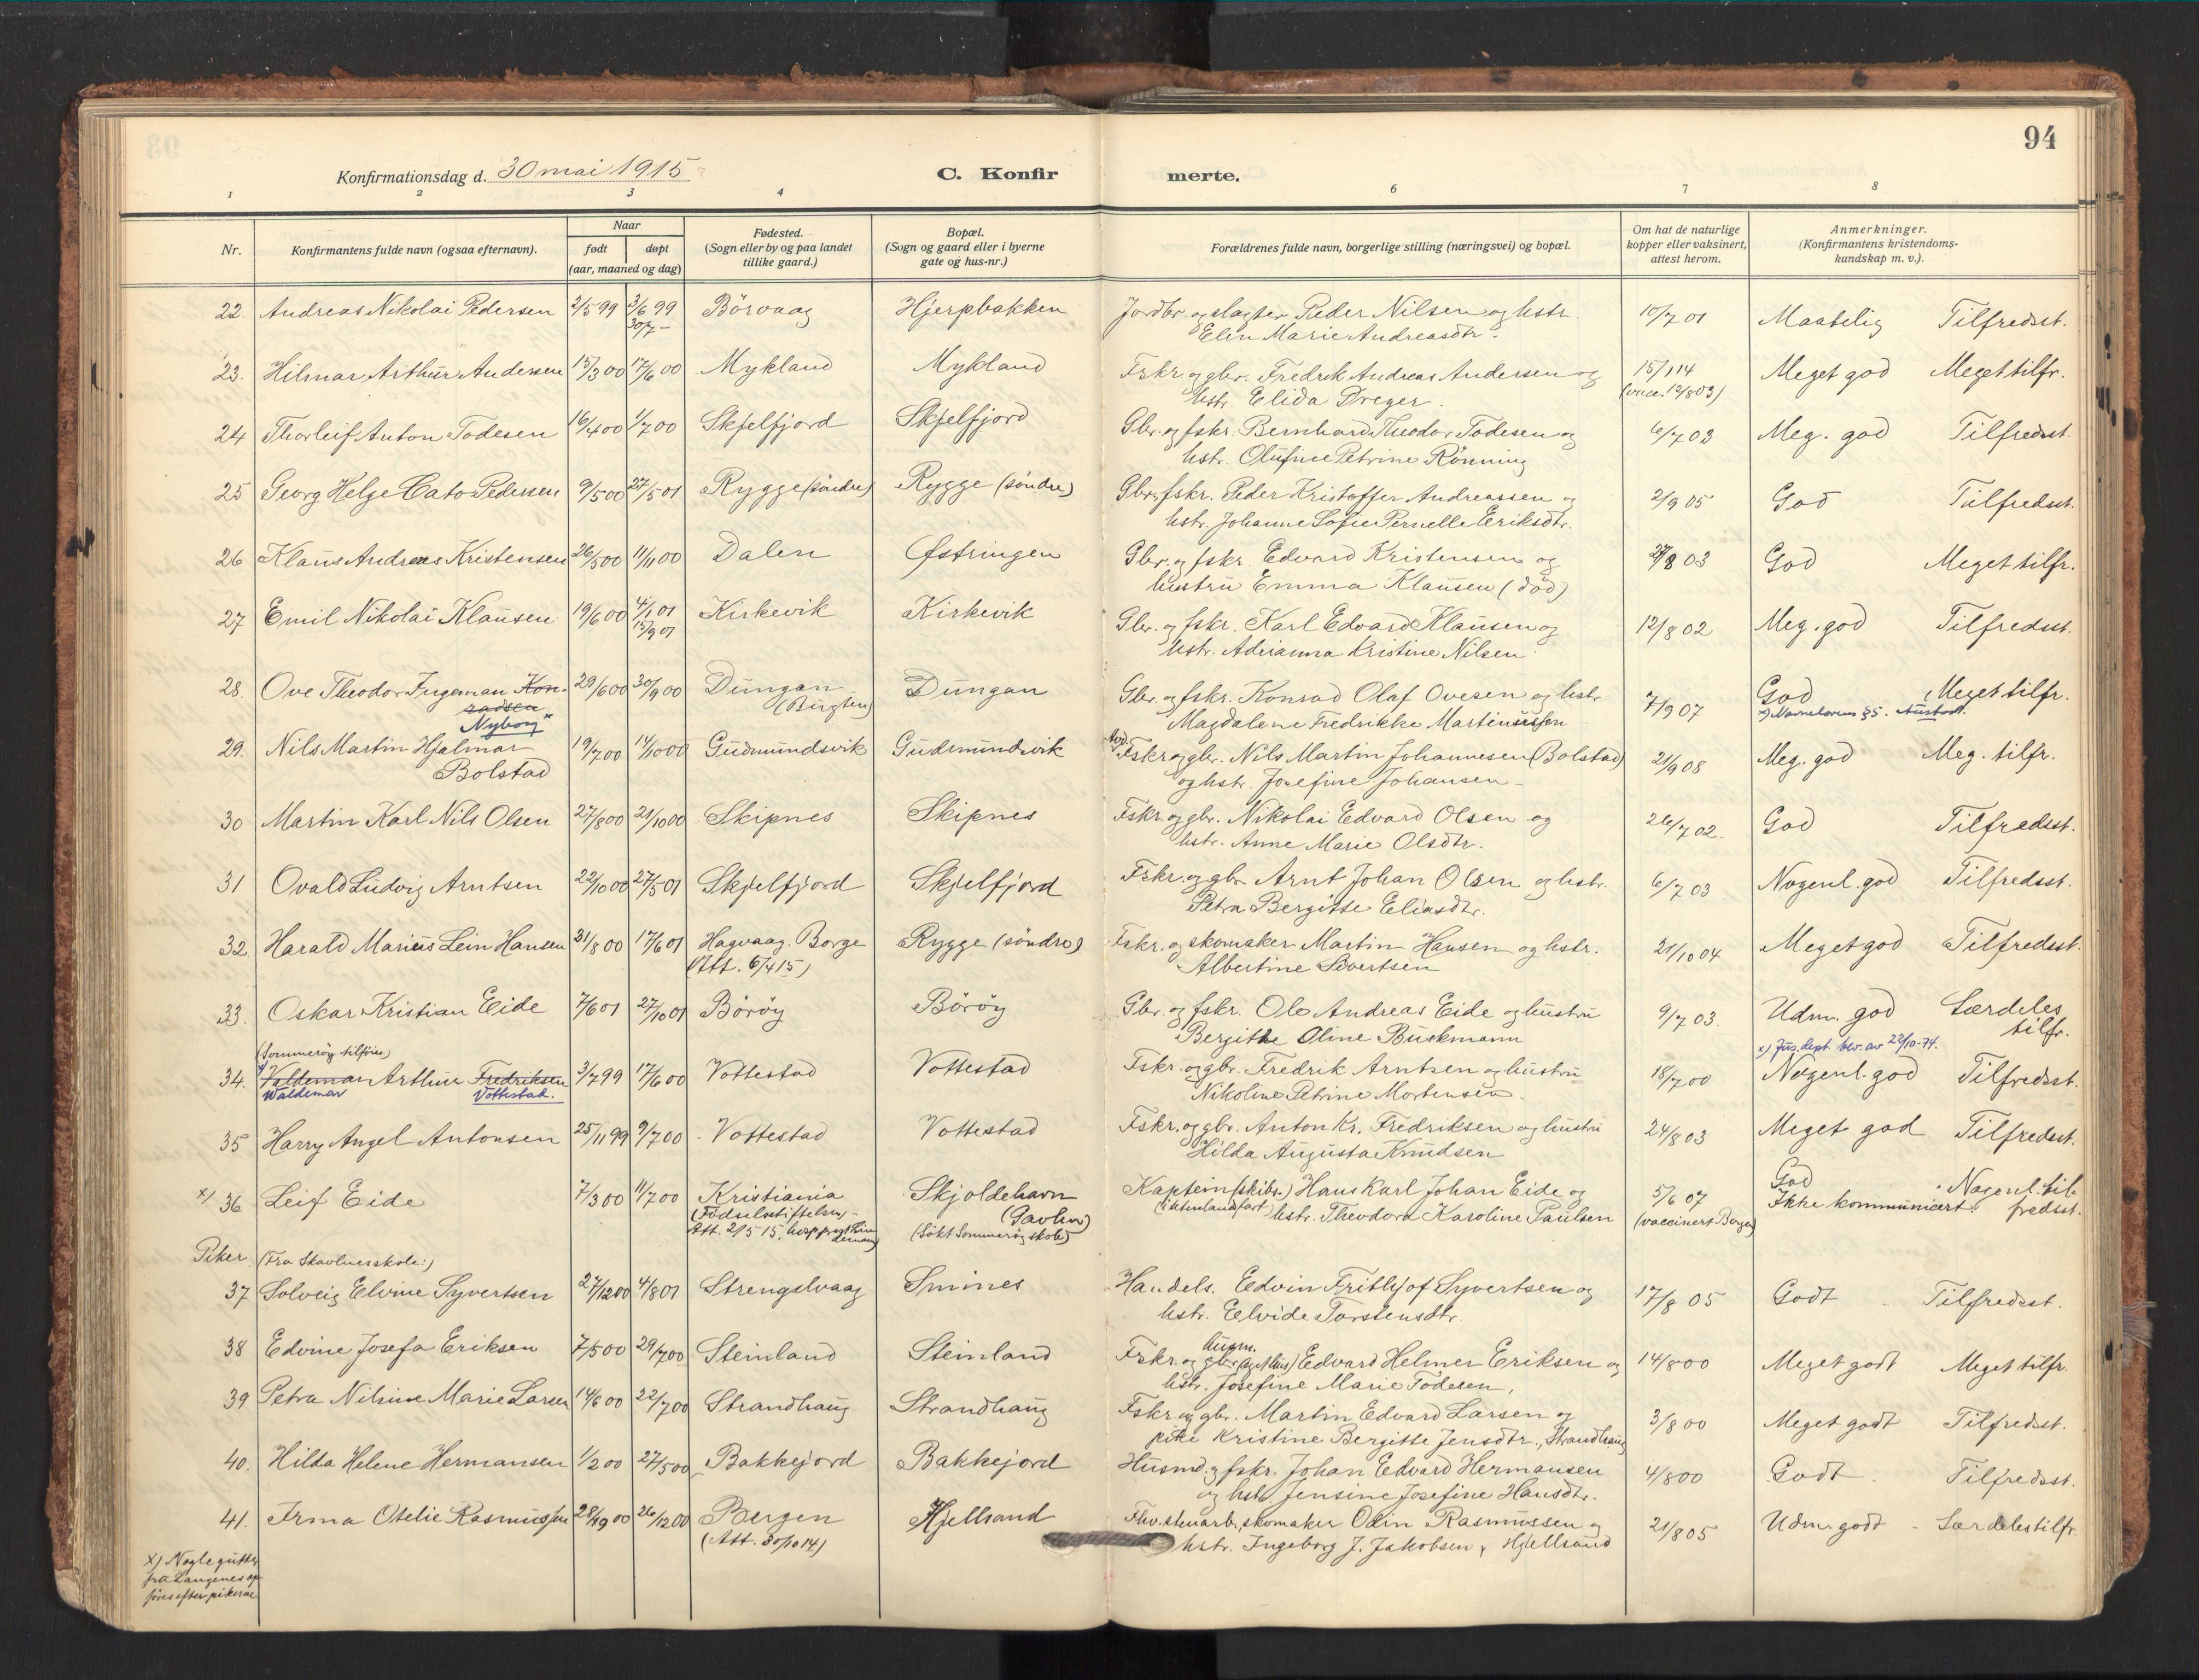 94
Konfirmationsdag d. 30 mai 1915
C. Konfir
merte.
1 2 3 4 6 7 8
Nr.
Konfirmantens fulde navn (ogsaa efternavn).
Naar
født døpt
(aar, maaned og dag)
Fødested.
(Sogn eller by og paa landet
tillike gaard.)
Bopæl.
(Sogn og gaard eller i byerne
gate og hus-nr.)
Forældrenes fulde navn, borgerlige stilling (næringsvei) og bopæl.
Om hat de naturlige
kopper eller vaksinert,
attest herom.
Anmerkninger.
(Konfirmantens kristendoms-
kundskap m. v.).
22. Andreas Nikolai Pedersen 2/5 99 3/6 99 Börvaag Hjerpbakken Jordbr. og slagter Peder Nilsen og hstr. 10/7 01 Maatelig Tilfredsst.
30/7 -
Elin Marie Andreasdtr.
23. Hilmar Arthur Andersen 15/3 00 17/6 00 Mykland Mykland Fskr. og gbr. Fredrik Andreas Andersen og 15/1 14 Meget god Meget tilfr.
hstr. Elida Dreyer. (vacc. 12/8 03)
24 Thorleif Anton Todesen 16/4 00 1/7 00 Skjelfjord Skjelfjord Gbr. og fskr. Bernhard Theodor Todesen og 6/7 03 Meg. god Tilfredsst.
hstr. Olufine Petrine Rönning
25 Georg Helge Cato Pedersen 9/5 00 27/5 01 Rygge (söndre) Rygge (söndre) Gbr. fskr. Peder Kristoffer Andreassen og 2/9 05 God Tilfredsst.
hstr. Johanne Sofie Pernelle Eriksdtr.
26 Klaus Andreas Kristensen 26/5 00 11/11 00 Dalen Østringen Gbr. og fskr. Edvard Kristensen og 27/8 03 God Meget tilfr.
hustru Emma Klausen (död)
27 Emil Nikolai Klausen 19/6 00 4/1 01 Kirkevik Kirkevik Gbr. og fskr. Karl Edvard Klausen og 12/8 02 Meg. god Tilfredsst.
15/9 01
hstr. Adrianna Kristine Nilsen
28. Ove Theodor Ingeman Kon- 29/6 00 30/9 00 Dungan Dungan Gbr. og fskr. Konrad Olaf Ovesen og hstr. 7/9 07 God Meget tilfr.
radsen (Birgten) Magdalene Fredrikke Martinussen x) Navneloven §5.
Nyborg x
29. Nils Martin Hjalmar 19/7 00 14/10 00 Gudmundsvik Gudmundsvik Fskr. og gbr. Nils Martin Johannesen (Bolstad) 21/9 08 Meg. god Meg. tilfr.
Bolstad og hstr. Josefine Johansen
30 Martin Karl Nils Olsen 27/8 00 21/10 00 Skipnes Skipnes Fskr. og gbr. Nikolai Edvard Olsen og 26/7 02 God Tilfredsst.
hstr. Anne Marie Olsdtr.
31 Ovald Ludvig Arntsen 22/10 00 27/5 01 Skjelfjord Skjelfjord Fskr. og gbr. Arnt Johan Olsen og hstr. 6/7 03 Nogenl. god Tilfredsst.
Petra Bergitte Eliasdtr.
32. Harald Marius Lein Hansen 31/8 00 17/6 01 Hagvaag. Borge Rygge (söndre) Fskr. og skomaker Martin Hansen og hstr. 21/10 04 Meget god Tilfredsst.
(Att. 6/4 15) Albertine Sivertsen
33. Oskar Kristian Eide 7/6 01 27/10 01 Böröy Böröy Gbr. og fskr. Ole Andreas Eide og hustru 9/7 03 Udm. god Særdeles
Bergitte Oline Buskmann tilfr.
(Sommeröy tilföies) x) Jus. dept. bev. av 22/10-74.
34. Valdemar Arthur Fredriksen 3/7 99 17/6 00 Vottestad Vottestad Fskr. og gbr. Fredrik Arntsen og hustru 18/7 00 Nogenl. god Tilfredsst.
Waldemar Vottestad. Nikoline Petrine Mortensen.
35 Harry Angel Antonsen 25/11 99 9/7 00 Vottestad Vottestad Fskr. og gbr. Anton Kr. Fredriksen og hustru 24/8 03 Meget god Tilfredsst.
Hilda Augusta Knudsen
x) 36 Leif Eide 7/3 00 11/7 00 Kristiania Skjoldehavn Kaptein (skibs-) Hans Karl Johan Eide og 5/6 07 God Nogenl. til-
(Födselsstiftelsen) (Gavlen) (utenlandsfart) hstr. Theodora Karoline Paulsen (vaccinert Bergen) Ikke kommunicert. fredsst.
Att. 2/5 15, (Sökt Sommeröy skole)
Piker (Fra Skavlnesskole:)
37 Solveig Elvine Syvertsen 27/12 00 4/8 01 Strengelvaag Smines Handels. Edvin Frithjof Syvertsen og 17/8 05 Godt Tilfredsst.
hstr. Elvide Torstensdtr.
38 Edvine Josefa Eriksen 7/5 00 29/7 00 Steinland Steinland Fskr. og gbr. (eget hus) Edvard Helmer Eriksen og 14/8 00 Meget godt Meget tilfr.
husm.
hstr. Josefine Marie Todesen,
39 Petra Nilsine Marie Larsen 14/6 00 22/7 00 Strandhaug Strandhaug Fskr. og gbr. Martin Edvard Larsen og 3/8 00 Meget godt Tilfredsst.
pike Kristine Bergitte Jensdtr., Strandhaug
40. Hilda Helene Hermansen 1/2 00 27/5 00 Bakkejord Bakkejord Husmd. og fskr. Johan Edvard Hermansen 4/8 00 Godt Tilfredsst.
og hstr. Jensine Josefine Hansdtr.
41. Irma Otelie Rasmussen 28/9 00 26/12 00 Bergen Hjellsand Fhv. stenarb., skomaker Odin Rasmussen og 21/8 05 Udm. godt - Særdeles tilfr.
(Att. 30/10 14) hstr. Ingeborg J. Jakobsen, Hjellsand
x) Nogle gutter
fra Langenes op-
föres efter pikerne